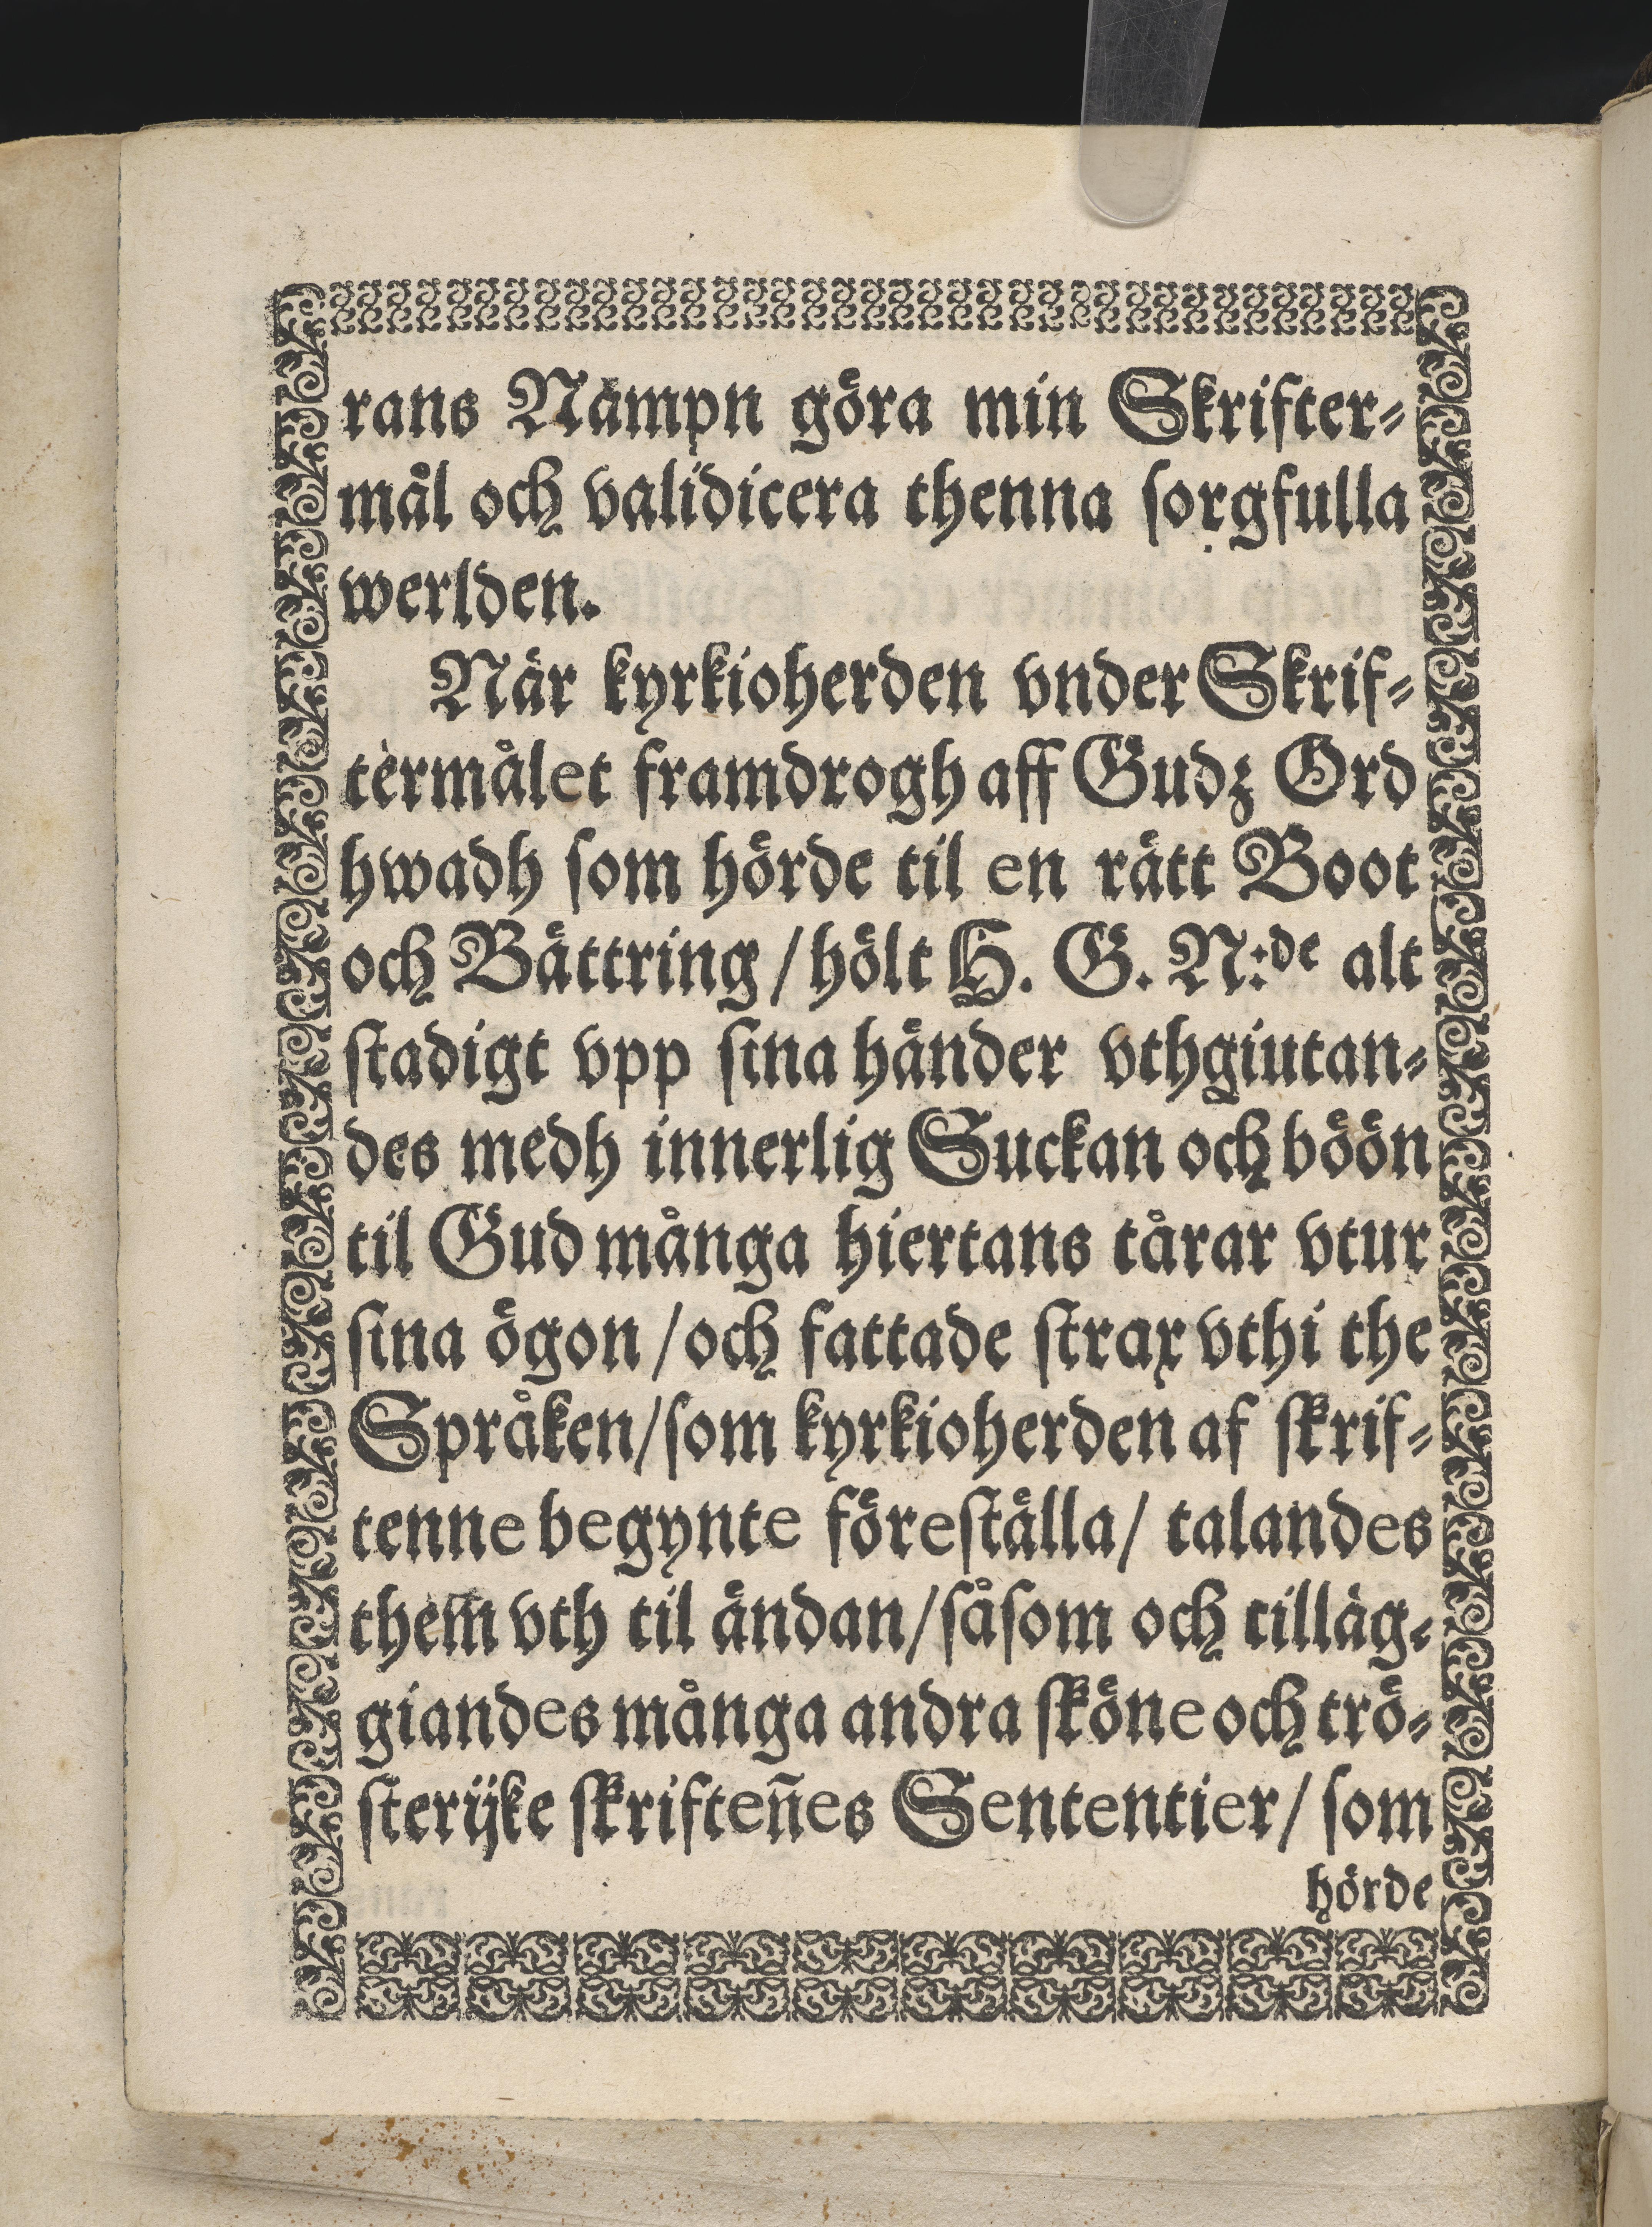 rans Nämpn göra min Skrifter⸗
mål och validicera thenna sorgfulla
werlden.
När kyrkioherden vnder Skrif⸗
termålet framdrogh aff Gudz Ord
hwadh som hörde til en rätt Boot
och Bättring / hölt H. G. N:de alt
stadigt vpp sina händer vthgiutan⸗
des medh innerlig Suckan och böön
til Gud många hiertans tårar vtur
sina ögon / och fattade strax vthi the
Språken / som kyrkioherden af skrif⸗
tenne begynte föreställa / talandes
them̃ vth til ändan / såsom och tilläg⸗
giandes många andra sköne och trö⸗
sterijke skrifteñes Sententier / som
hörde